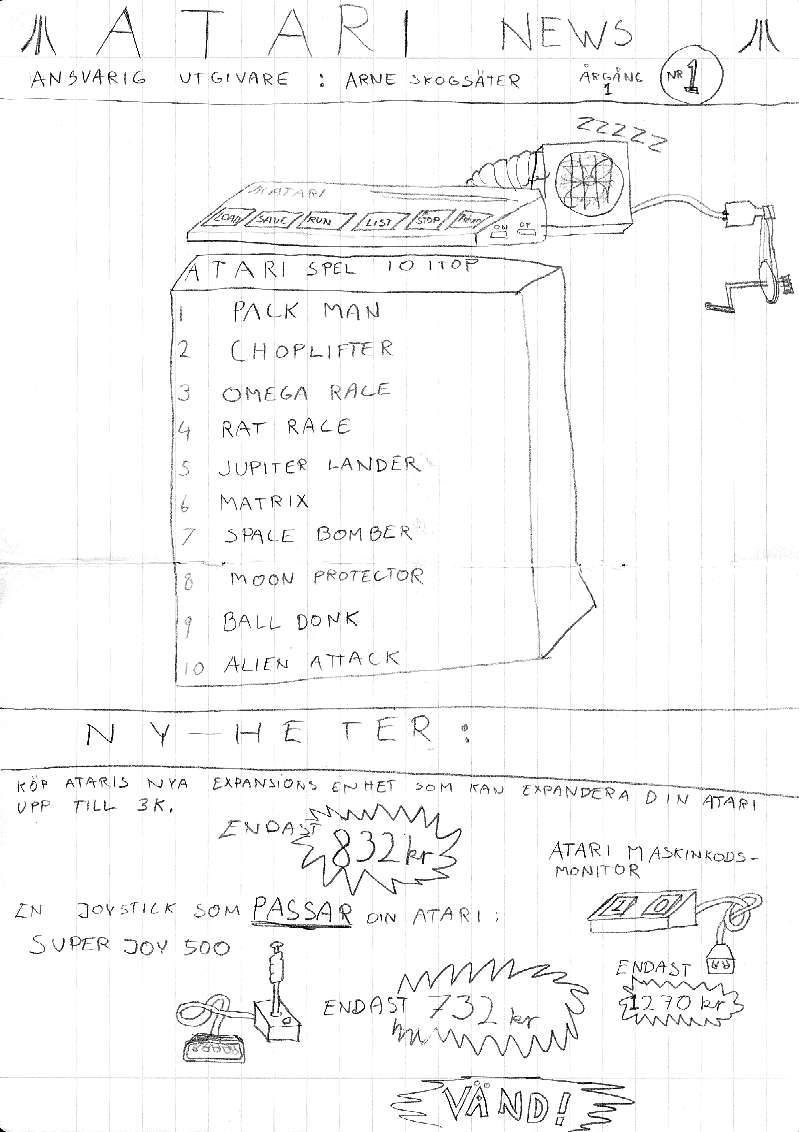 ATARI NEWS
ANSVARIG UTGIVARE : ARNE SKOGSÄTER ÅRGÅNG 1 NR 1
ZZZZZ
ATARI
LOAD SAVE RUN LIST STOP ON OF
ATARI SPEL 10 ITOP
1 PACK MAN
2 CHOPLIFTER
3 OMEGA RACE
4 RAT RACE
5 JUPITER LANDER
6 MATRIX
7 SPACE BOMBER
8 MOON PROTECTOR
9 BALL DONK
10 ALIEN ATTACK
NY-HETER:
KÖP ATARIS NYA EXPANSIONS ENHET SOM KAN EXPANDERA DIN ATARI
UPP TILL 3K.
ENDAST 832 kr
ATARI MASKINKODS-
MONITOR
EN JOYSTICK SOM PASSAR DIN ATARI:
SUPER JOY 500
ENDAST 732 kr
ENDAST
1270 kr
VÄND!